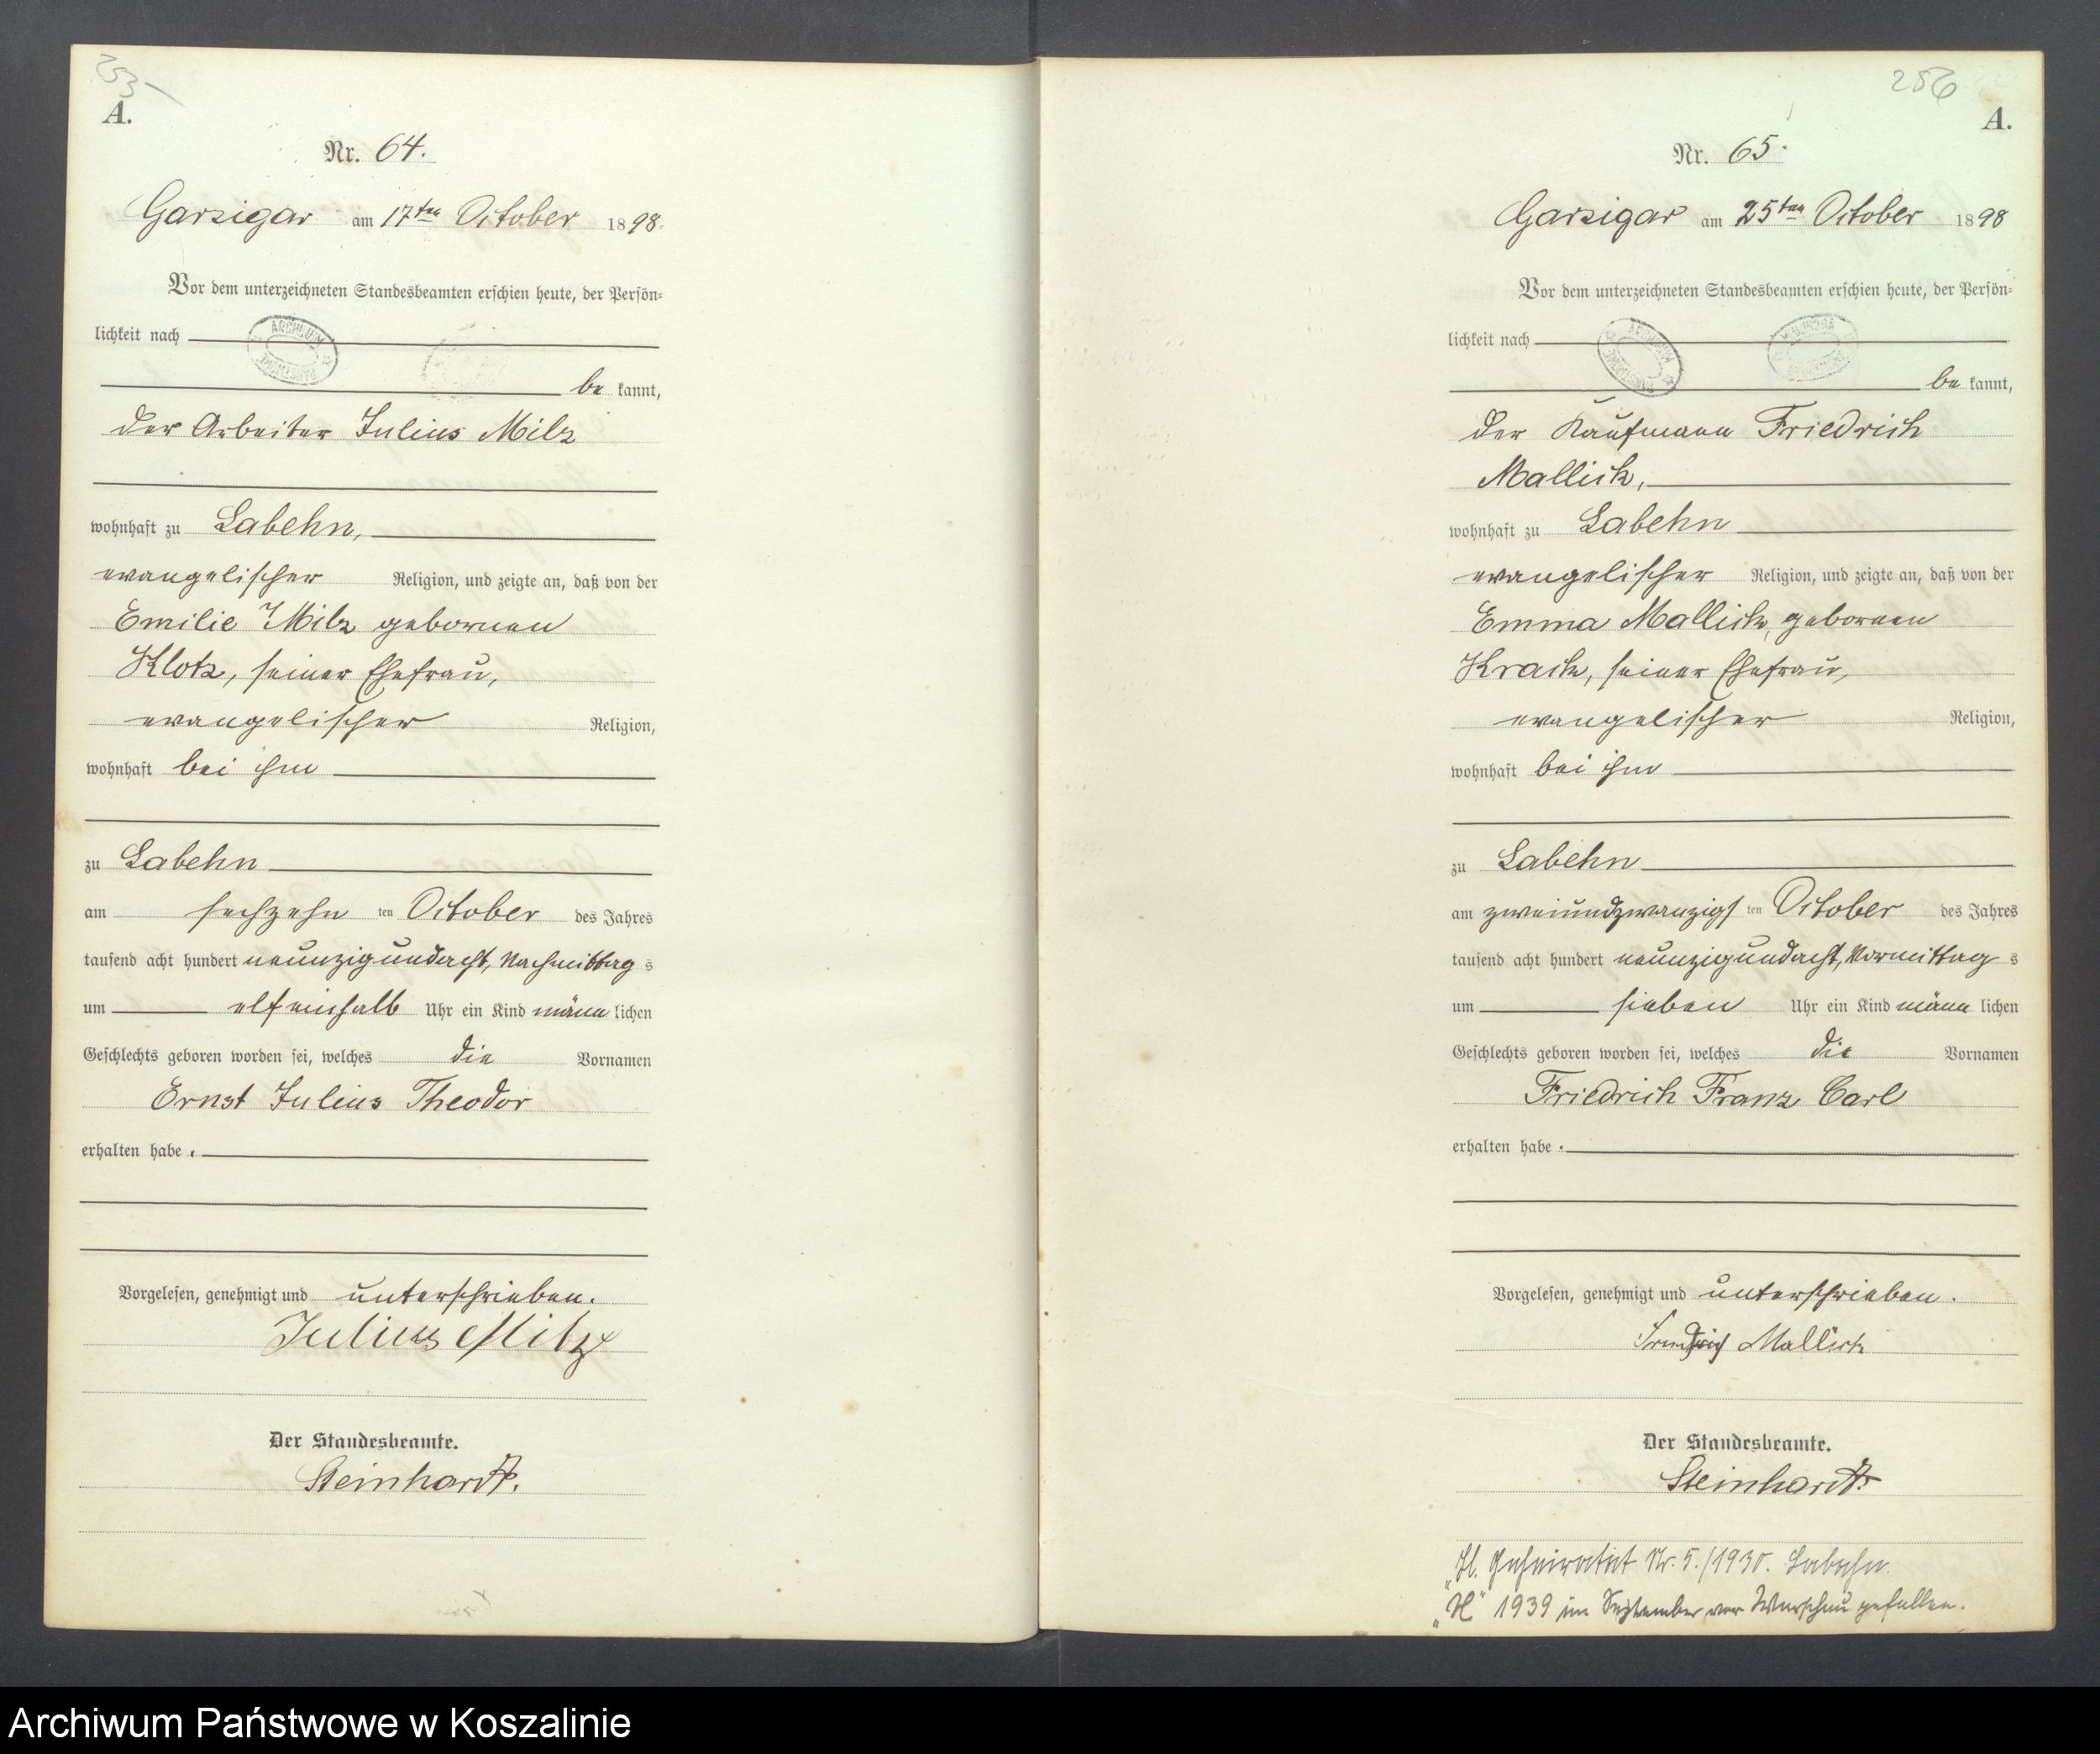 253
A.
Nr. 64.
Garzigar am 17ten October 1898.
Vor dem unterzeichneten Standesbeamten erschien heute, der Persön-
lichkeit nach
ARCHIWUM PAŃSTWOWE
be kannt,
der Arbeiter Julius Milz
wohnhaft zu Labehn,
evangelischer Religion, und zeigte an, daß von der
Emilie Milz gebornen
Klotz, seiner Ehefrau,
evangelischer Religion,
wohnhaft bei ihm
zu Labehn
am sechzehn ten October des Jahres
tausend acht hundert neunzigundacht, Nachmittag s
um elfeinhalb Uhr ein Kind männ lichen
Geschlechts geboren worden sei, welches die Vornamen
Ernst Julius Theodor
erhalten habe.
Vorgelesen, genehmigt und unterschrieben.
Julius Milz
Der Standesbeamte.
Steinhardt.
256
A.
Nr. 65.
Garzigar am 25ten October 1898
Vor dem unterzeichneten Standesbeamten erschien heute, der Persön-
lichkeit nach
ARCHIWUM PAŃSTWOWE
be kannt,
der Kaufmann Friedrich
Mallick,
wohnhaft zu Labehn
evangelischer Religion, und zeigte an, daß von der
Emma Mallick, gebornen
Krack, seiner Ehefrau,
evangelischer Religion,
wohnhaft bei ihm
zu Labehn
am zweiundzwanzigs ten October des Jahres
tausend acht hundert neunzigundacht, Vormittag s
um sieben Uhr ein Kind männ lichen
Geschlechts geboren worden sei, welches die Vornamen
Friedrich Franz Carl
erhalten habe.
Vorgelesen, genehmigt und unterschrieben.
Friedrich Mallick
Der Standesbeamte.
Steinhardt.
Geheiratet Nr. 5./1930. Labehn.
"H" 1939 im September vor Warschau gefallen.
Archiwum Państwowe w Koszalinie